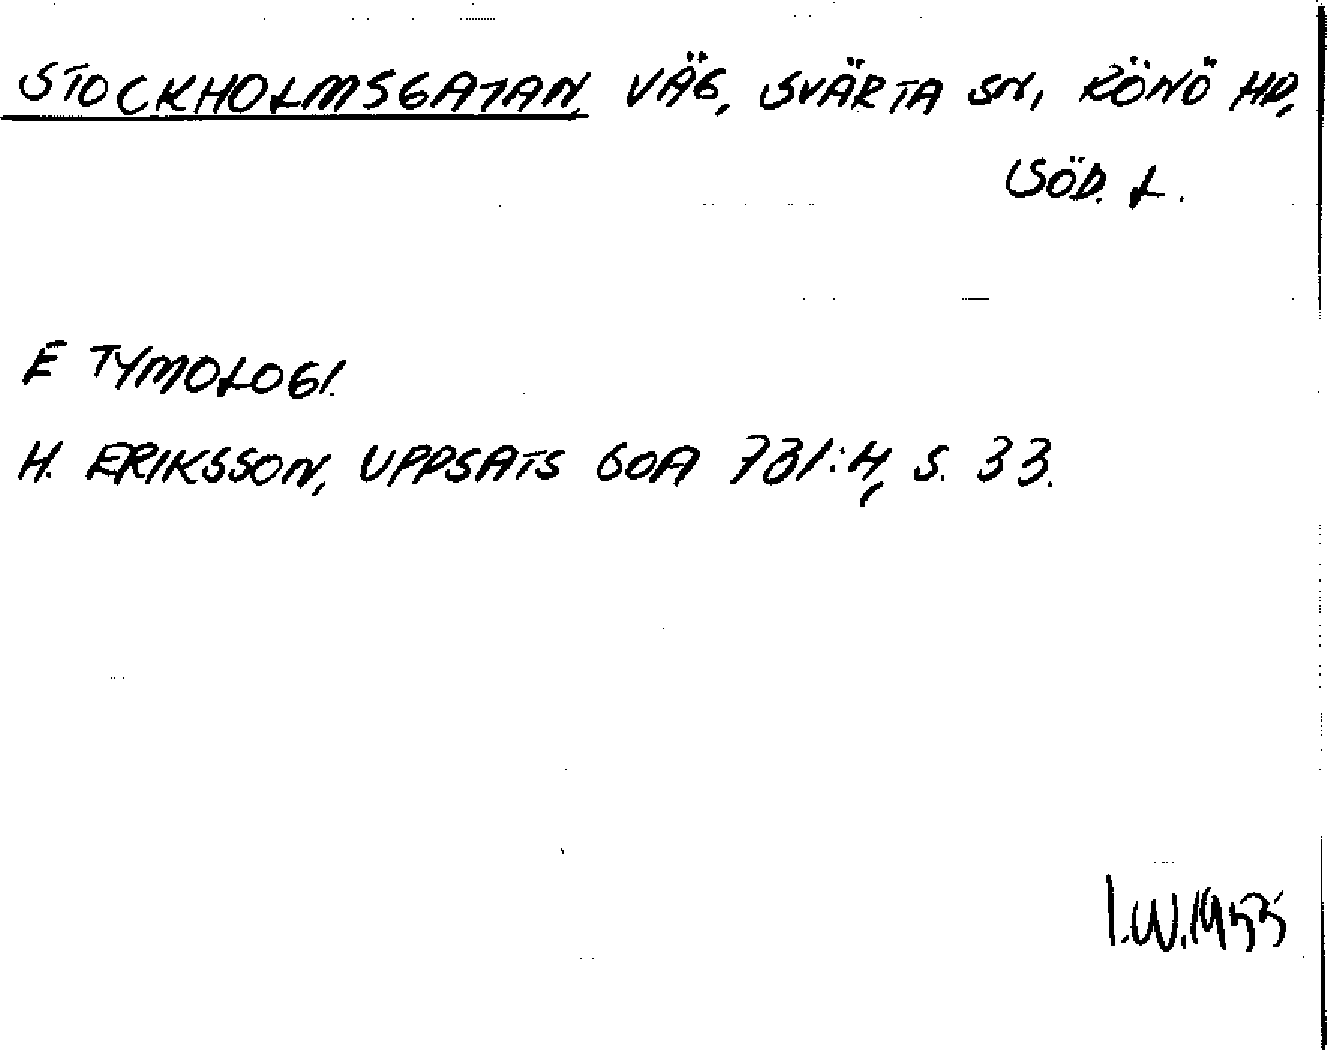 STOCKHOLMSGATAN, VÄG, SVÄRTA SN, RÖNÖ HD,
SÖD. L.
ETYMOLOGI.
H. ERIKSSON, UPPSATS GOA 731:4, S. 33.
I.W. 1955